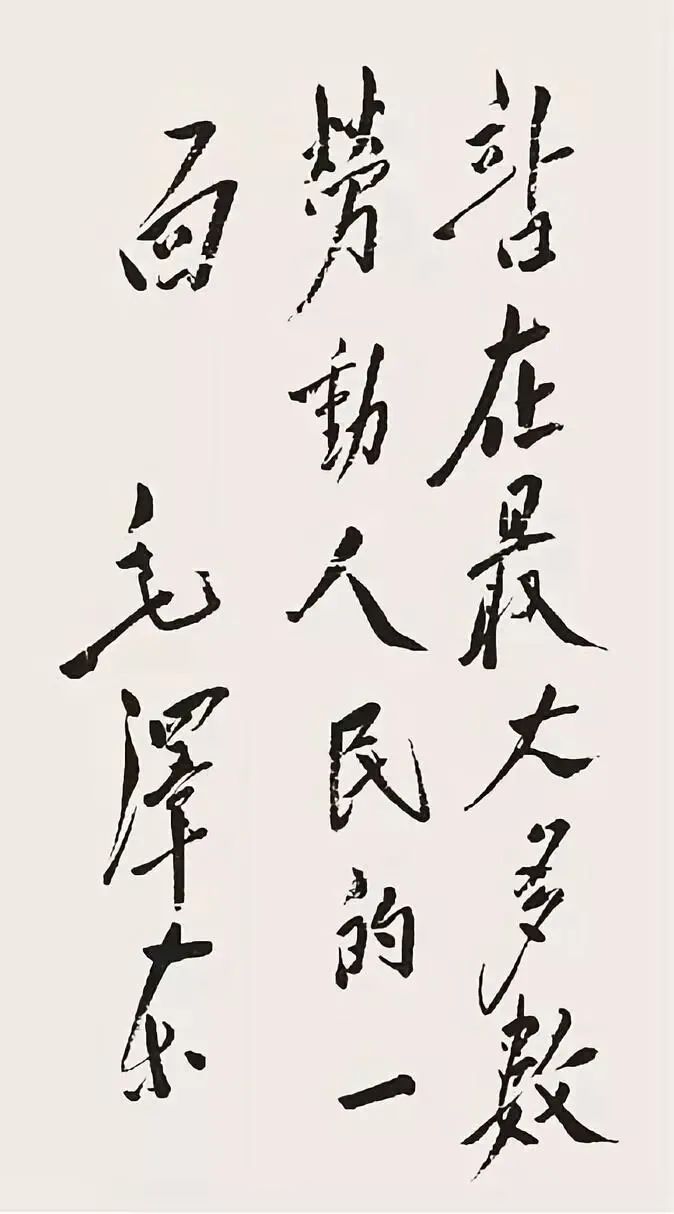 站在最大多數
勞動人民的一
面 毛澤东